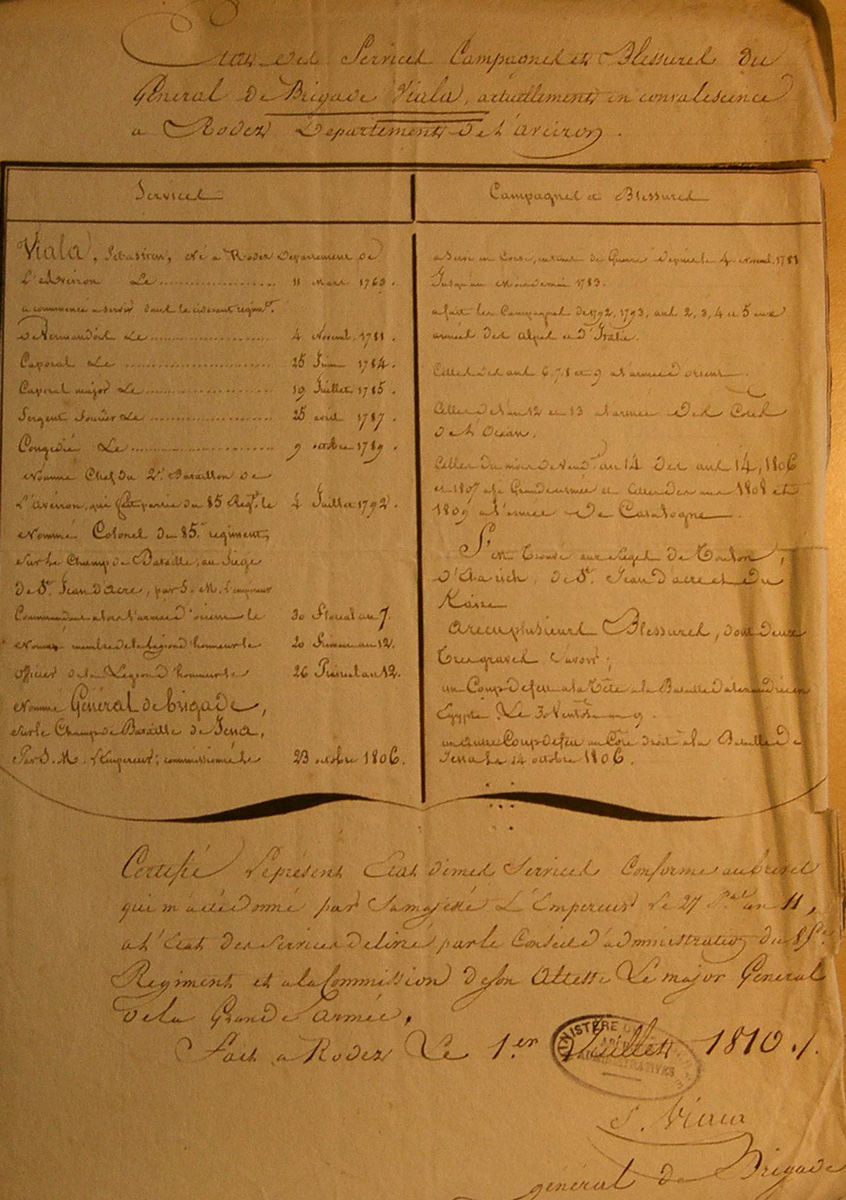 Etat des Services Campagnes et Blessures du
Général de Brigade Viala, actuellement en convalescence
a Rodez Departement de L'aveiron.
Services
Viala, Sebastien, né a Rodez Departement de
L'aveiron Le .................. 11 Mars 1763.
a commencé a servir dans le cidevant regimt.
De Vermandois Le .................. 4 Novemb. 1781.
Caporal Le .................. 25 Juin 1784.
Caporal major Le .................. 19 Juillet 1785.
Sergent fourier Le .................. 25 avril 1787.
Congédié Le .................. 9 octobre 1789.
Nommé Chef du 2e. Bataillon de
L'aveiron, qui fit partie du 85 Regt. le 4 Juillet 1792.
Nommé Colonel du 85e. regiment,
sur Le Champ de Bataille, au Siege
de St. Jean d'acre, par S. M. L'empereur
Commandant alors l'armée d'orient le 30 floreal an 7.
Nommé membre de la Legion d'honneur le 20 frimaire an 12.
officier de la Legion d'honneur le 26 Prairial an 12.
Nommé Général de brigade,
sur le Champ de Bataille de Jena,
Par S. M. L'Empereur; commissionné le 23 octobre 1806.
Campagnes et Blessures
a servi en Corse, en tems de Guerre depuis le 4 Novemb. 1781
Jusqu'au 1783.
a fait les Campagnes de 1792, 1793, ans 2, 3, 4 et 5 aux
armées des alpes et d'Italie.
Celles des ans 6, 7, 8 et 9 a l'armée d'orient
Celles de l'an 12 et 13 a l'armée des Cotes
de L'Océan.
Celles du mois de Vendre. an 14 des ans 14, 1806
et 1807 a la Grande armée et celles des ans 1808 et
1809 a l'armée de Catalogne
S'est trouvé aux sieges de Toulon,
d'El arich, de St. Jean d'acre et du
Kaire
a recu plusieurs Blessures, dont deux
Tres graves Savoir;
un Coup de feu a la Tête a la Bataille d'alexandrie en
Egypte, Le 30 Ventôse an 9.
un autre Coup de feu au Coté droit a la Bataille de
Jena le 14 octobre 1806.
Certifié Le présent Etat de mes Services Conforme au brevet
qui m'a été donné par Sa majesté L'Empereur Le 27 an 11,
a l'Etat des services délivré par le Conseil d'administration du 85e.
Regiment et a la Commission de Son Altesse Le major Général
de la Grande armée.
Fait a Rodez Le 1.er Juillet 1810 ./.
MINISTÈRE
ADMINISTRATIVES
S. Viala
général de Brigade